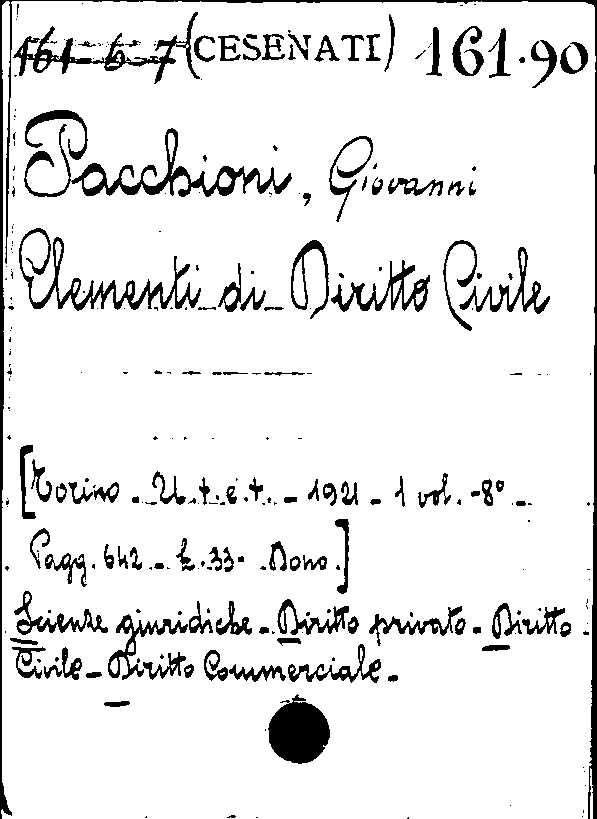 161-6-7 (CESENATI) 161.90
Pacchioni, Giovanni
Elementi di Diritto Civile
[Torino - U.t.e.t. - 1921 - 1 vol. - 8° -
Pagg. 642 - £. 33 - Dono.]
Scienze giuridiche - Diritto privato - Diritto
Civile - Diritto Commerciale -